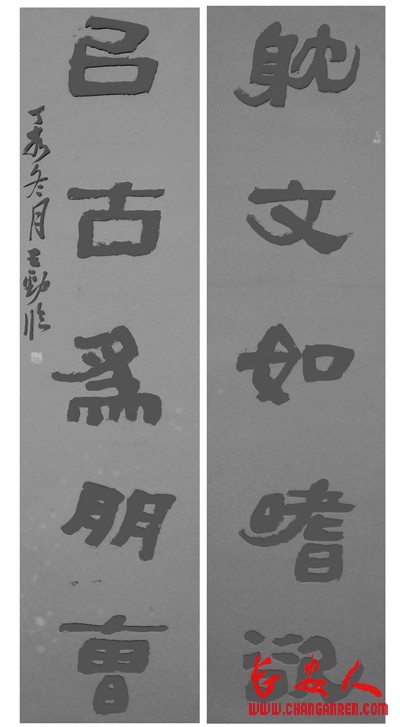 躭文如嗜欲
㠯古爲朋曹
丁亥冬月王勁臨
长安人
WWW.CHANGANREN.COM